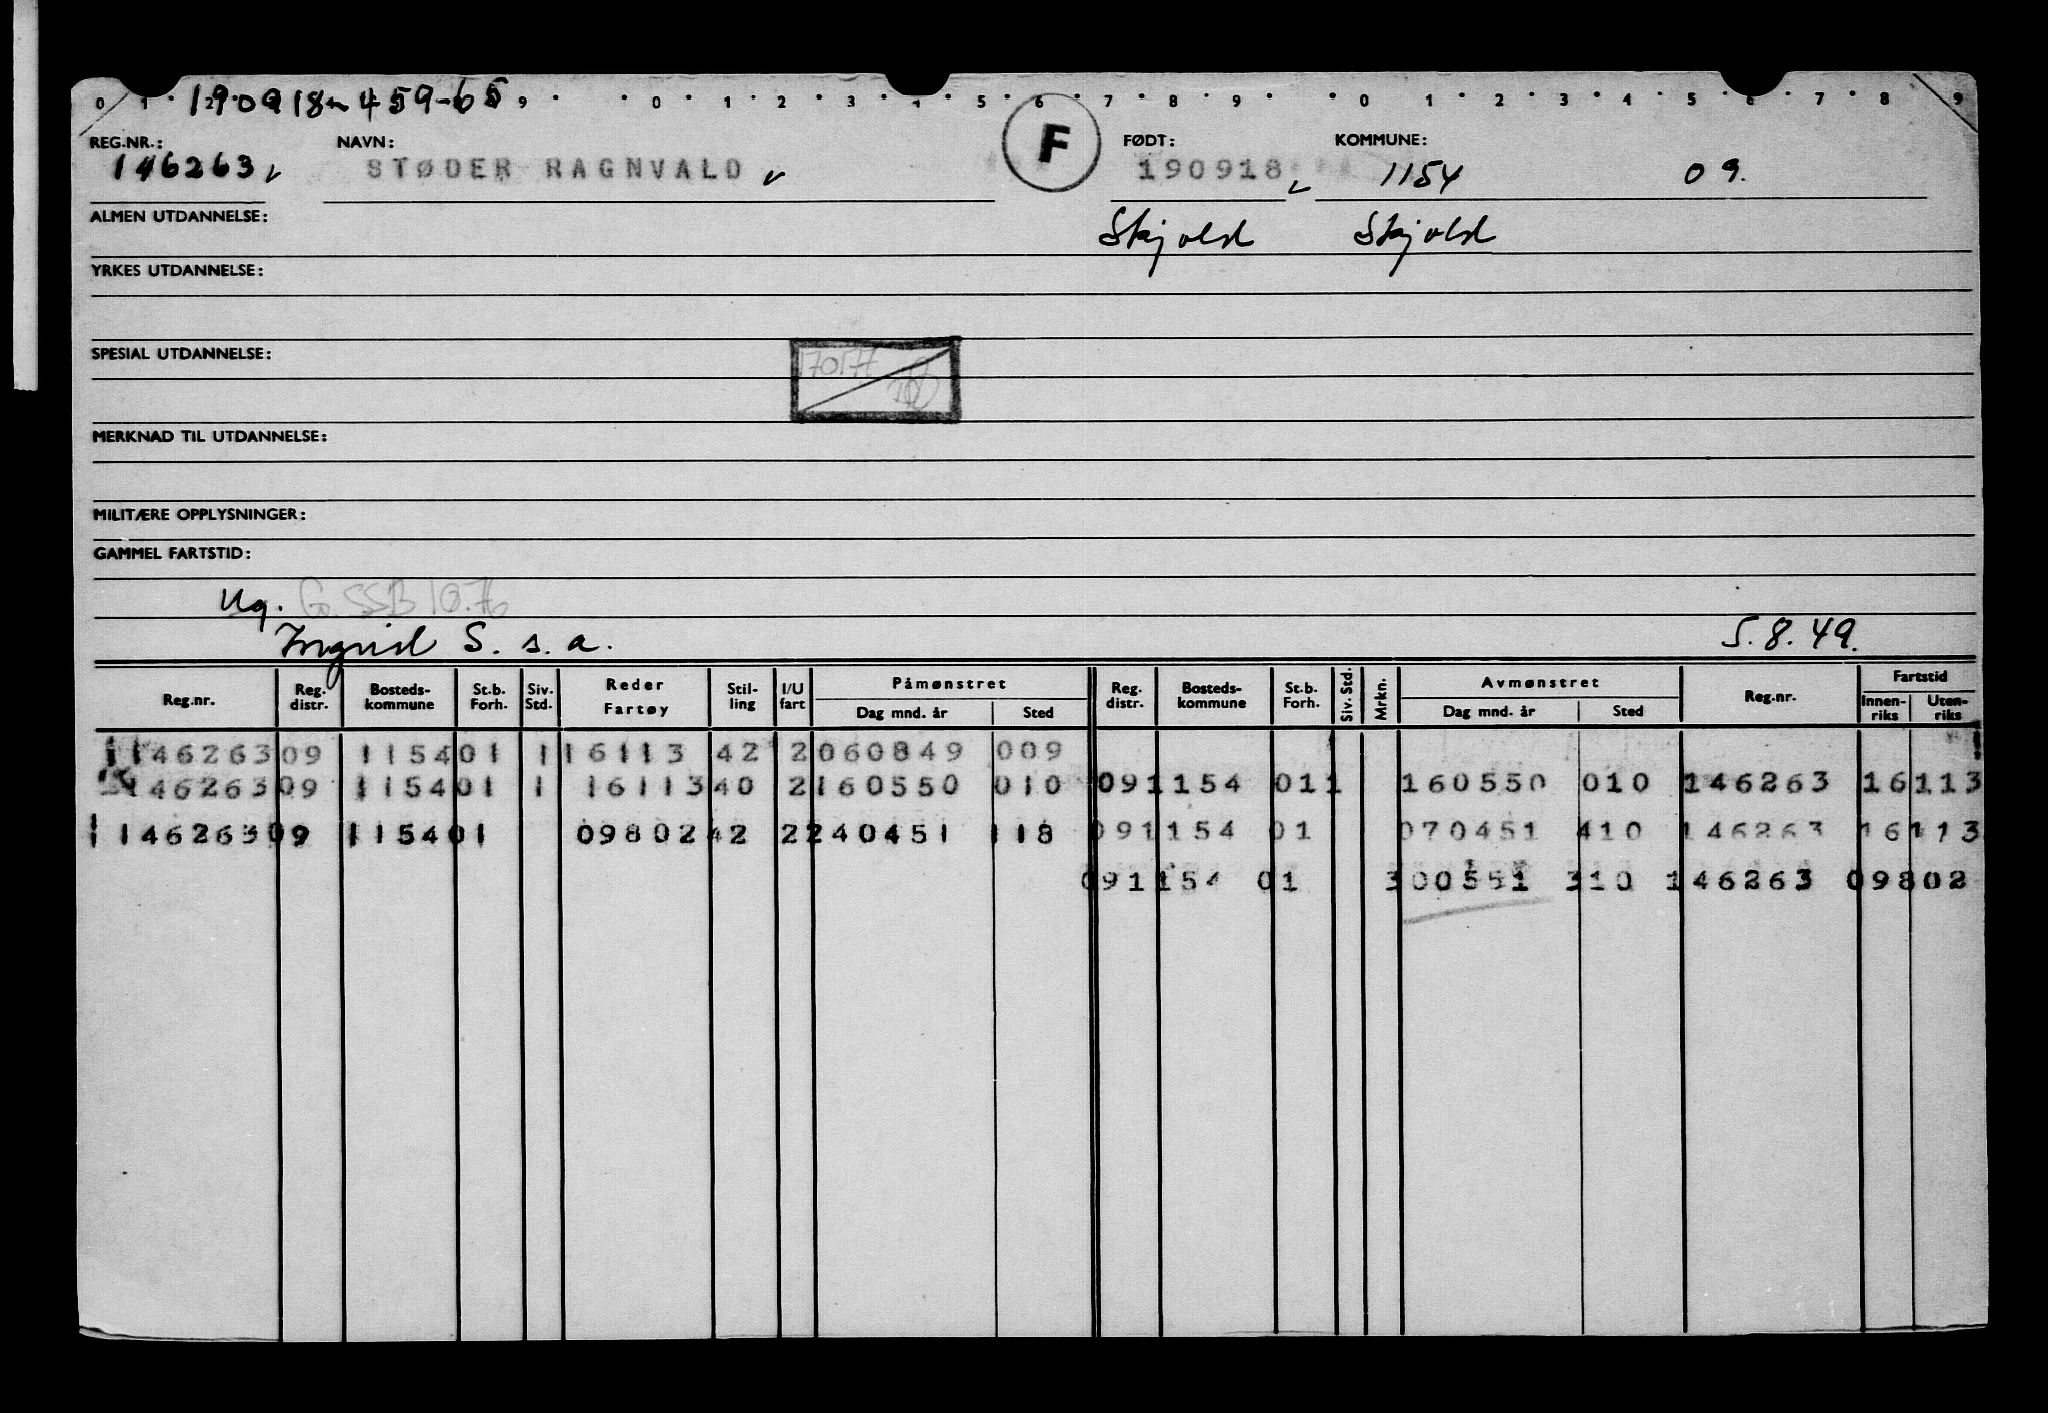 190918-459-65
0 1 2 9 0 1 2 3 4 5 6 7 8 9 0 1 2 3 4 5 6 7 8 9
REG.NR.: NAVN: F FØDT: KOMMUNE:
146263 STØDER RAGNVALD 190918 1154 09.
ALMEN UTDANNELSE: Skjold Skjold
YRKES UTDANNELSE:
SPESIAL UTDANNELSE:
MERKNAD TIL UTDANNELSE:
MILITÆRE OPPLYSNINGER:
GAMMEL FARTSTID:
Ug. G. SSB 10.76
Ingrid S. s.a. 5.8.49.
Reg.nr. Reg. distr. Bosteds-kommune St.b. Forh. Siv. Std. Reder Fartøy Stil-ling I/U fart Påmønstret Dag mnd. år Sted Reg. distr. Bosteds-kommune St.b. Forh. Siv. Std. Mrkn. Avmønstret Dag mnd. år Sted Reg.nr. Fartstid Innen-riks Uten-riks
1 146263 09 1154 01 1 16113 42 2 060849 009
146263 09 1154 01 1 16113 40 2 160550 010 09 1154 01 1 160550 010 146263 16113
1 146263 09 1154 01 09802 42 2 240451 118 09 1154 01 070451 410 146263 16113
09 1154 01 300551 310 146263 09802